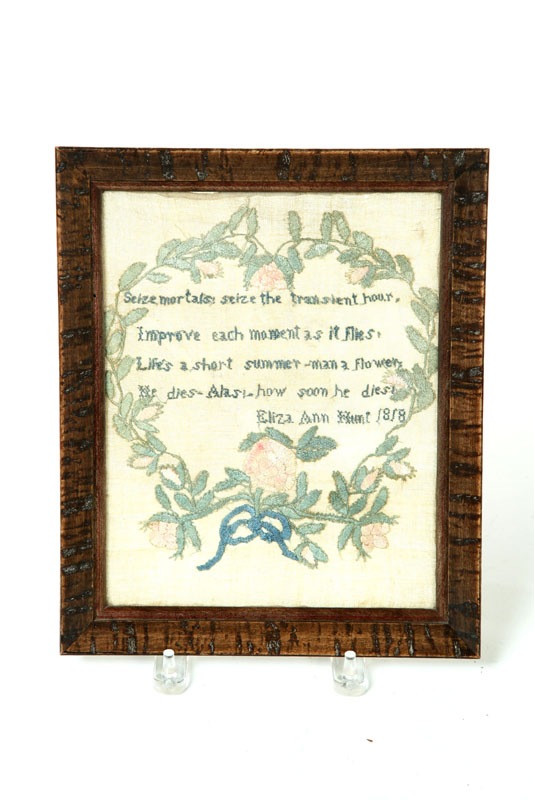 Seize mortals; seize the transient hour,
Improve each moment as it flies;
Life's a short summer - man a flower;
He dies - Alas; - how soon he dies!
Eliza Ann Hunt 1818